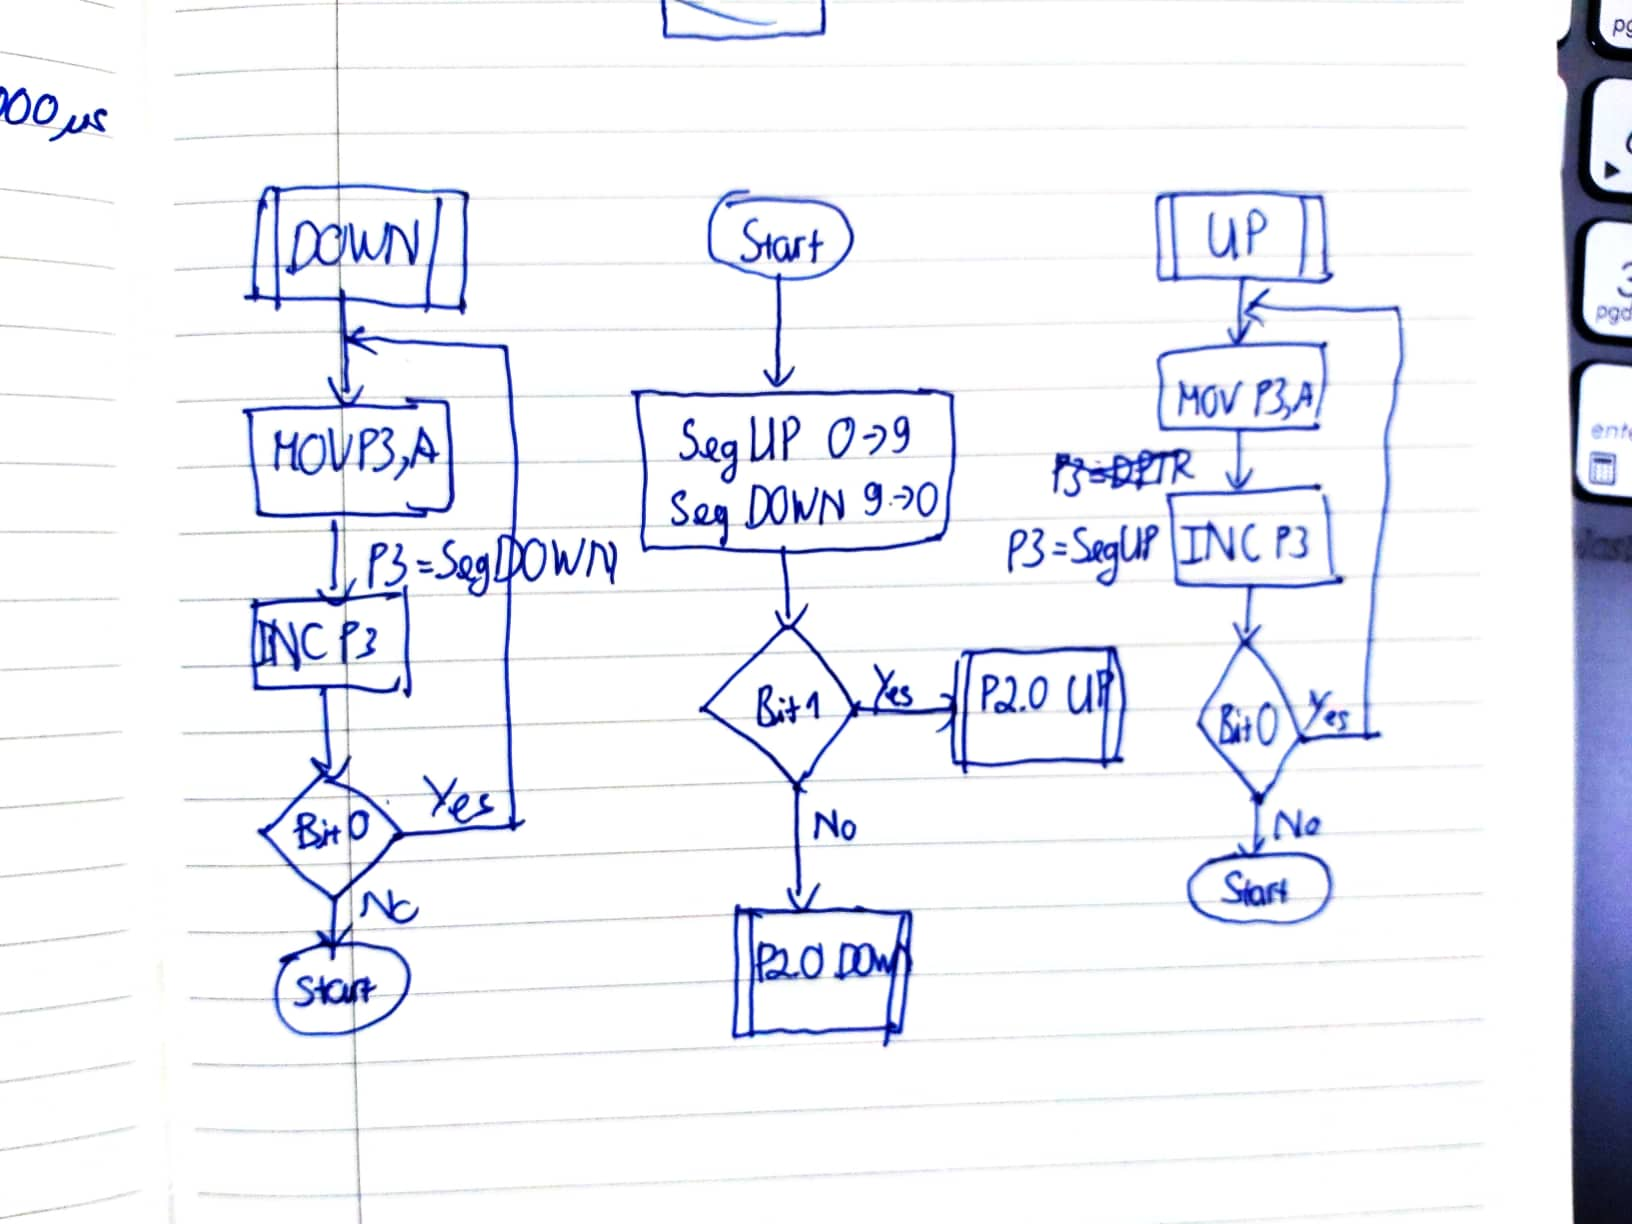 000 µs
DOWN
MOV P3,A
P3 = Seg DOWN
INC P3
Bit 0
Yes
No
Start
Start
Seg UP 0→9
Seg DOWN 9→0
Bit 1
Yes
P2.0 UP
No
P2.0 DOWN
UP
MOV P3,A
P3=DPTR
P3 = Seg UP
INC P3
Bit 0
Yes
No
Start
3
pgd
ente